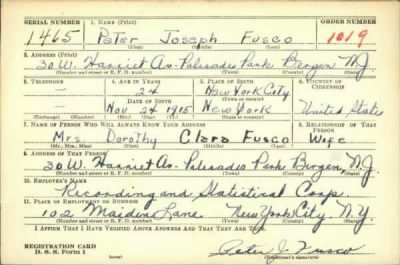 SERIAL NUMBER 1. NAME (Print) ORDER NUMBER
1465 Peter Joseph Fusco 1019
(First) (Middle) (Last)
2. ADDRESS (Print)
30 W. Harriet Av. Palisades Park Bergen N.J.
(Number and street or R. F. D. number) (Town) (County) (State)
3. TELEPHONE 4. AGE IN YEARS 5. PLACE OF BIRTH 6. COUNTRY OF CITIZENSHIP
— 24 New York City
DATE OF BIRTH (Town or county)
— Nov 24 1915 New York United States
(Exchange) (Number) (Mo.) (Day) (Yr.) (State or country)
7. NAME OF PERSON WHO WILL ALWAYS KNOW YOUR ADDRESS 8. RELATIONSHIP OF THAT PERSON
Mrs. Dorothy Clara Fusco Wife
(Mr., Mrs., Miss) (First) (Middle) (Last)
9. ADDRESS OF THAT PERSON
30 W. Harriet Av. Palisades Park Bergen N.J.
(Number and street or R. F. D. number) (Town) (County) (State)
10. EMPLOYER'S NAME
Recording and Statistical Corp.
11. PLACE OF EMPLOYMENT OR BUSINESS
102 Maiden Lane New York City N.Y.
(Number and street or R. F. D. number) (Town) (County) (State)
I AFFIRM THAT I HAVE VERIFIED ABOVE ANSWERS AND THAT THEY ARE TRUE.
REGISTRATION CARD
D. S. S. Form 1 Peter J. Fusco
(Registrant's signature)